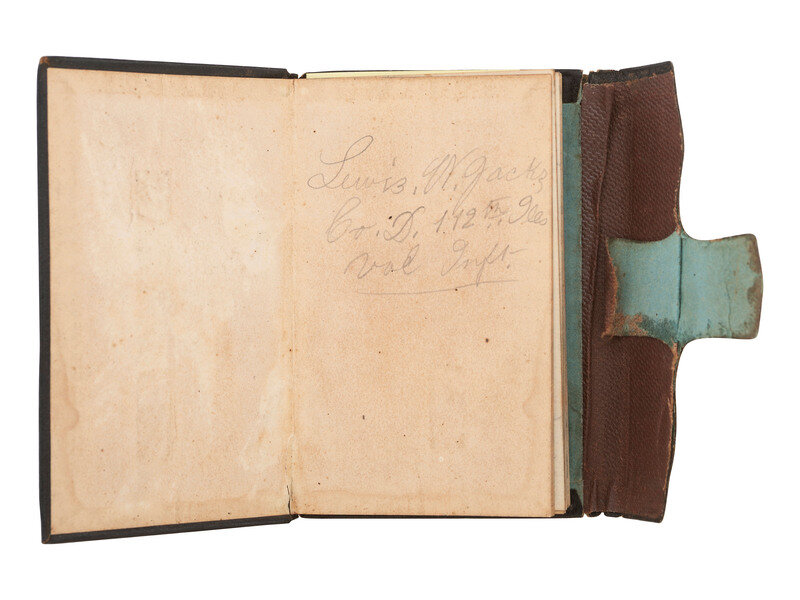 Lewis. W. Jacks
Co. D. 112th Ills
Vol Inft.